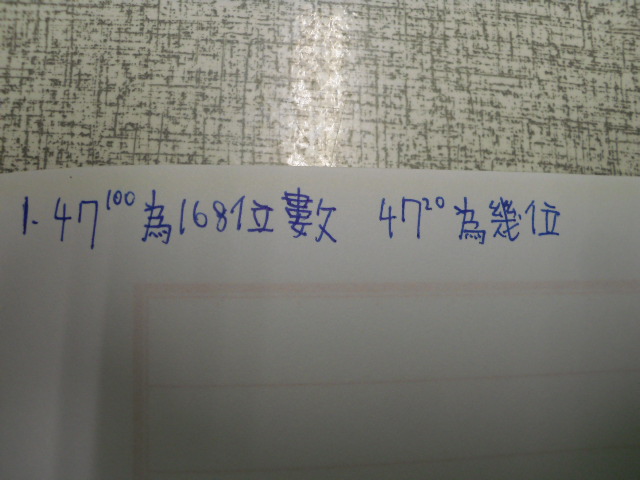 1. 47¹⁰⁰為168位數 47²⁰為幾位